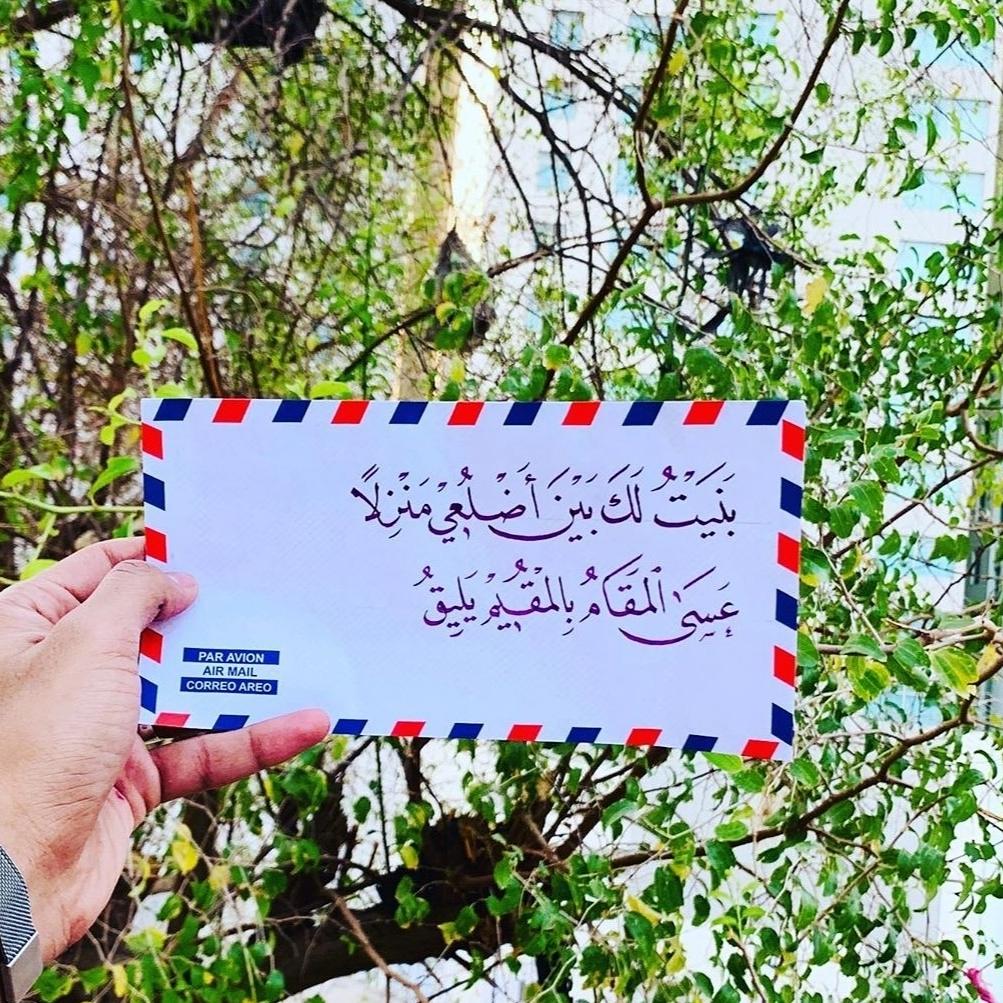 بَنَيتُ لَكَ بَيْنَ أَضْلُعِي مَنْزِلًا
عَسَى ٱلمَقَامُ بِالمُقِيْمِ يَلِيقُ
PAR AVION
AIR MAIL
CORREO AREO